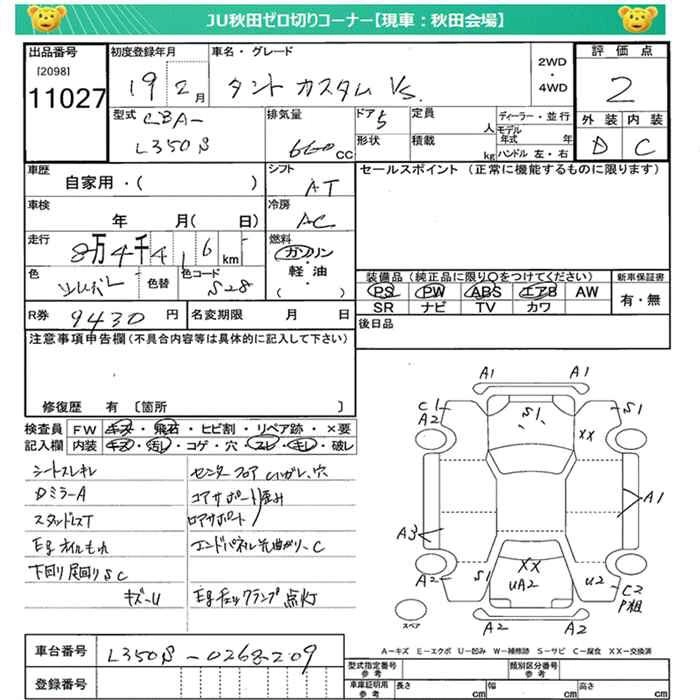 JU秋田ゼロ切りコーナー【現車：秋田会場】
出品番号 初度登録年月 車名・グレード 2WD・4WD 評価点
[2098]
11027 19 2月 タント カスタム Vs. 2
型式 CBA- 排気量 ドア 5 定員 人 ディーラー・並行 外装 内装
モデル年式 年
L350S 660cc 形状 積載 kg ハンドル 左・右 D C
車歴 シフト セールスポイント (正常に機能するものに限ります)
自家用・( ) AT
車検 冷房
年 月( 日) AC
走行 8万4千416km 燃料 ガソリン
・
色 色替 色コード S28 軽油 装備品(純正品に限り〇をつけてください) 新車保証書
( ) PS PW ABS エアB AW 有・無
R券 9430円 名変期限 月 日 SR ナビ TV カワ
注意事項申告欄(不具合内容等は具体的に記入して下さい) 後日品
修復歴 有 〔箇所 〕
検査員 FW キズ・飛石・ヒビ割・リペア跡・×要
記入欄 内装 キズ・汚レ・コゲ・穴・スレ・キレ・破レ
シートスレキレ
DミラーA コアサポート歪み
スタッドレスT ロアサポート
Egオイルもれ エンドパネル先曲がり、C
下回り足回りSC
キズ-U Egチェックランプ点灯
A1 A1
C1 S1 S1
A2 XX
A1
A3
A2 S1 XX UA2 U2 C2
P粗
スペア A2 A2
A－キズ E－エクボ U－凹み W－補修跡 S－サビ C－腐食 XX－交換済
車台番号 L350S-0268209 型式指定番号 参考 類別区分番号 参考
登録番号 車庫証明用 参考 長さ cm 幅 cm 高さ cm